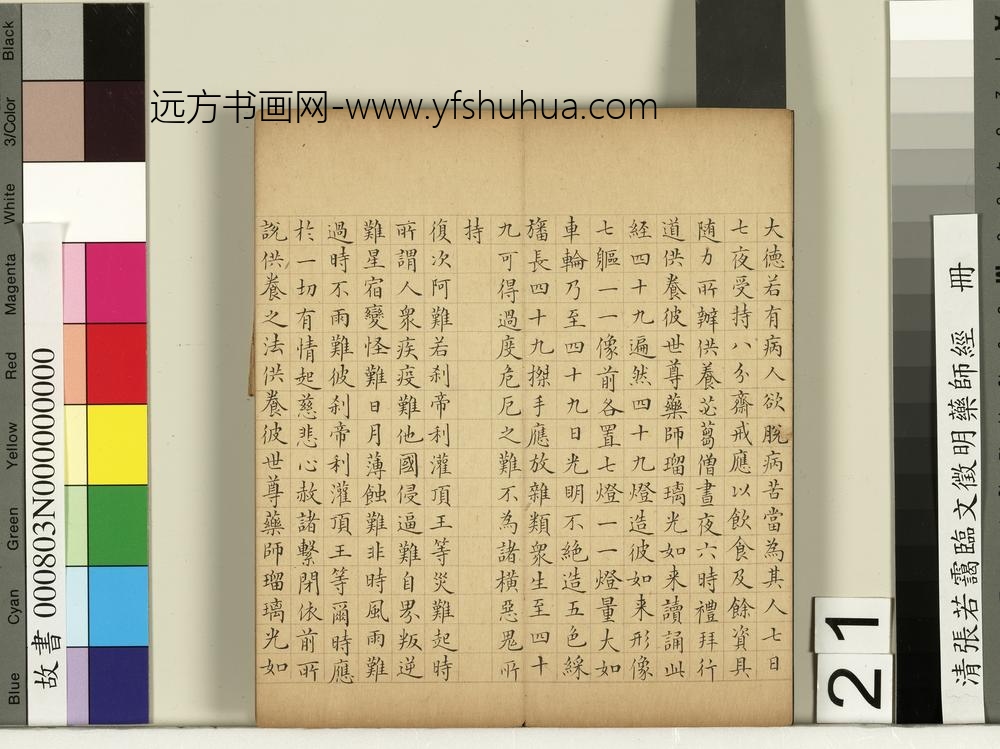 远方书画网-www.yfshuhua.com
大德若有病人欲脫病苦當為其人七日
七夜受持八分齋戒應以飲食及餘資具
随力所辦供養苾蒭僧晝夜六時禮拜行
道供養彼世尊藥師瑠璃光如来讀誦此
経四十九遍然四十九燈造彼如来形像
七軀一一像前各置七燈一一燈量大如
車輪乃至四十九日光明不絶造五色綵
旛長四十九搩手應放雜類衆生至四十
九可得過度危厄之難不為諸橫惡鬼所
持
復次阿難若刹帝利灌頂王等災難起時
所謂人衆疾疫難他國侵逼難自界叛逆
難星宿變怪難日月薄蝕難非時風雨難
過時不雨難彼刹帝利灌頂王等爾時應
於一切有情起慈悲心赦諸繫閉依前所
說供養之法供養彼世尊藥師瑠璃光如
Black
3/Color
White
Magenta
Red
Yellow
Green
Cyan
Blue
故書 000803N000000000
清張若靄臨文徵明藥師經 冊
21